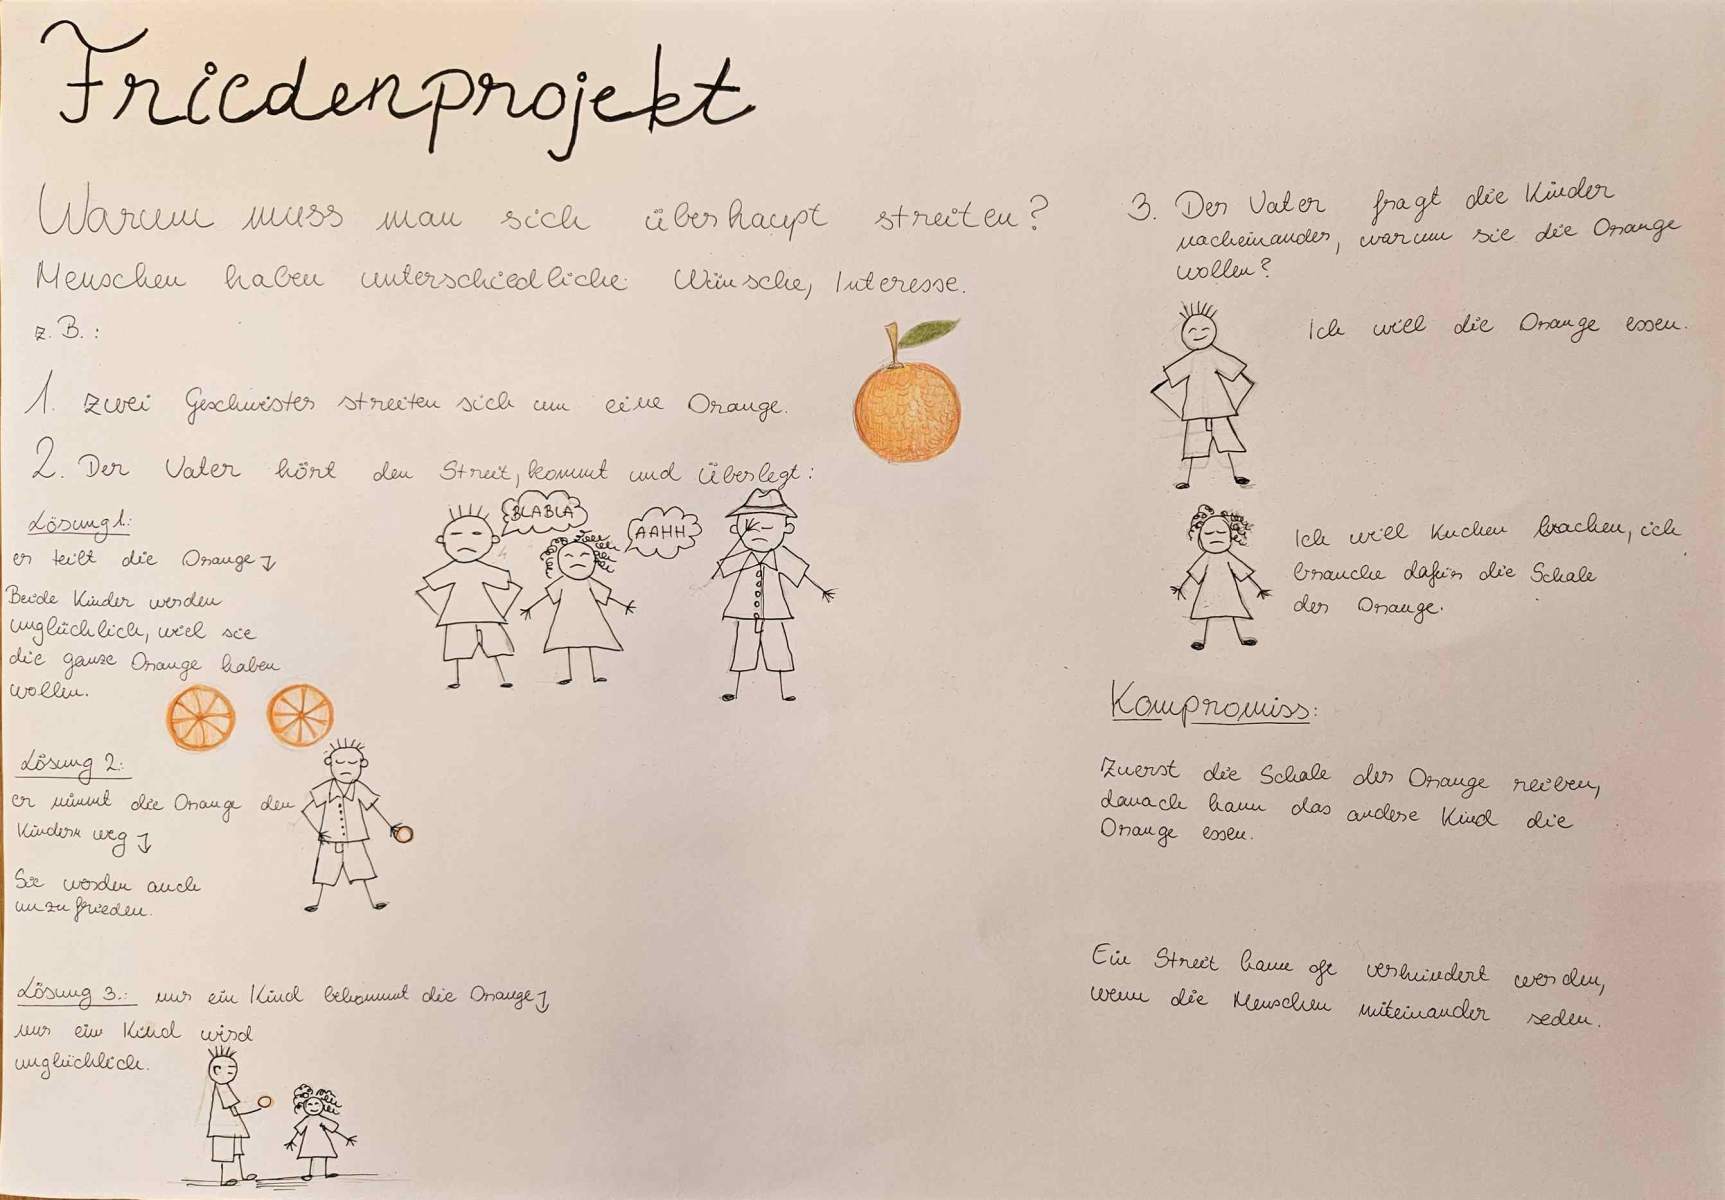 Friedenprojekt
Warum muss man sich überhaupt streiten?
Menschen haben unterschiedliche Wünsche, Interesse.
z.B.:
1. zwei Geschwister streiten sich um eine Orange.
2. Der Vater hört den Streit, kommt und überlegt:
BLABLA
AAHH
Lösung 1.:
er teilt die Orange
Beide Kinder werden
unglücklich, weil sie
die ganze Orange haben
wollen.
Lösung 2.:
er nimmt die Orange den
Kindern weg
Sie werden auch
unzufrieden.
Lösung 3.: nur ein Kind bekommt die Orange
nur ein Kind wird
unglücklich.
3. Der Vater fragt die Kinder
nacheinander, warum sie die Orange
wollen?
Ich will die Orange essen.
Ich will Kuchen backen, ich
brauche dafür die Schale
der Orange.
Kompromiss:
Zuerst die Schale der Orange reiben,
danach kann das andere Kind die
Orange essen.
Ein Streit kann oft verhindert werden,
wenn die Menschen miteinander reden.